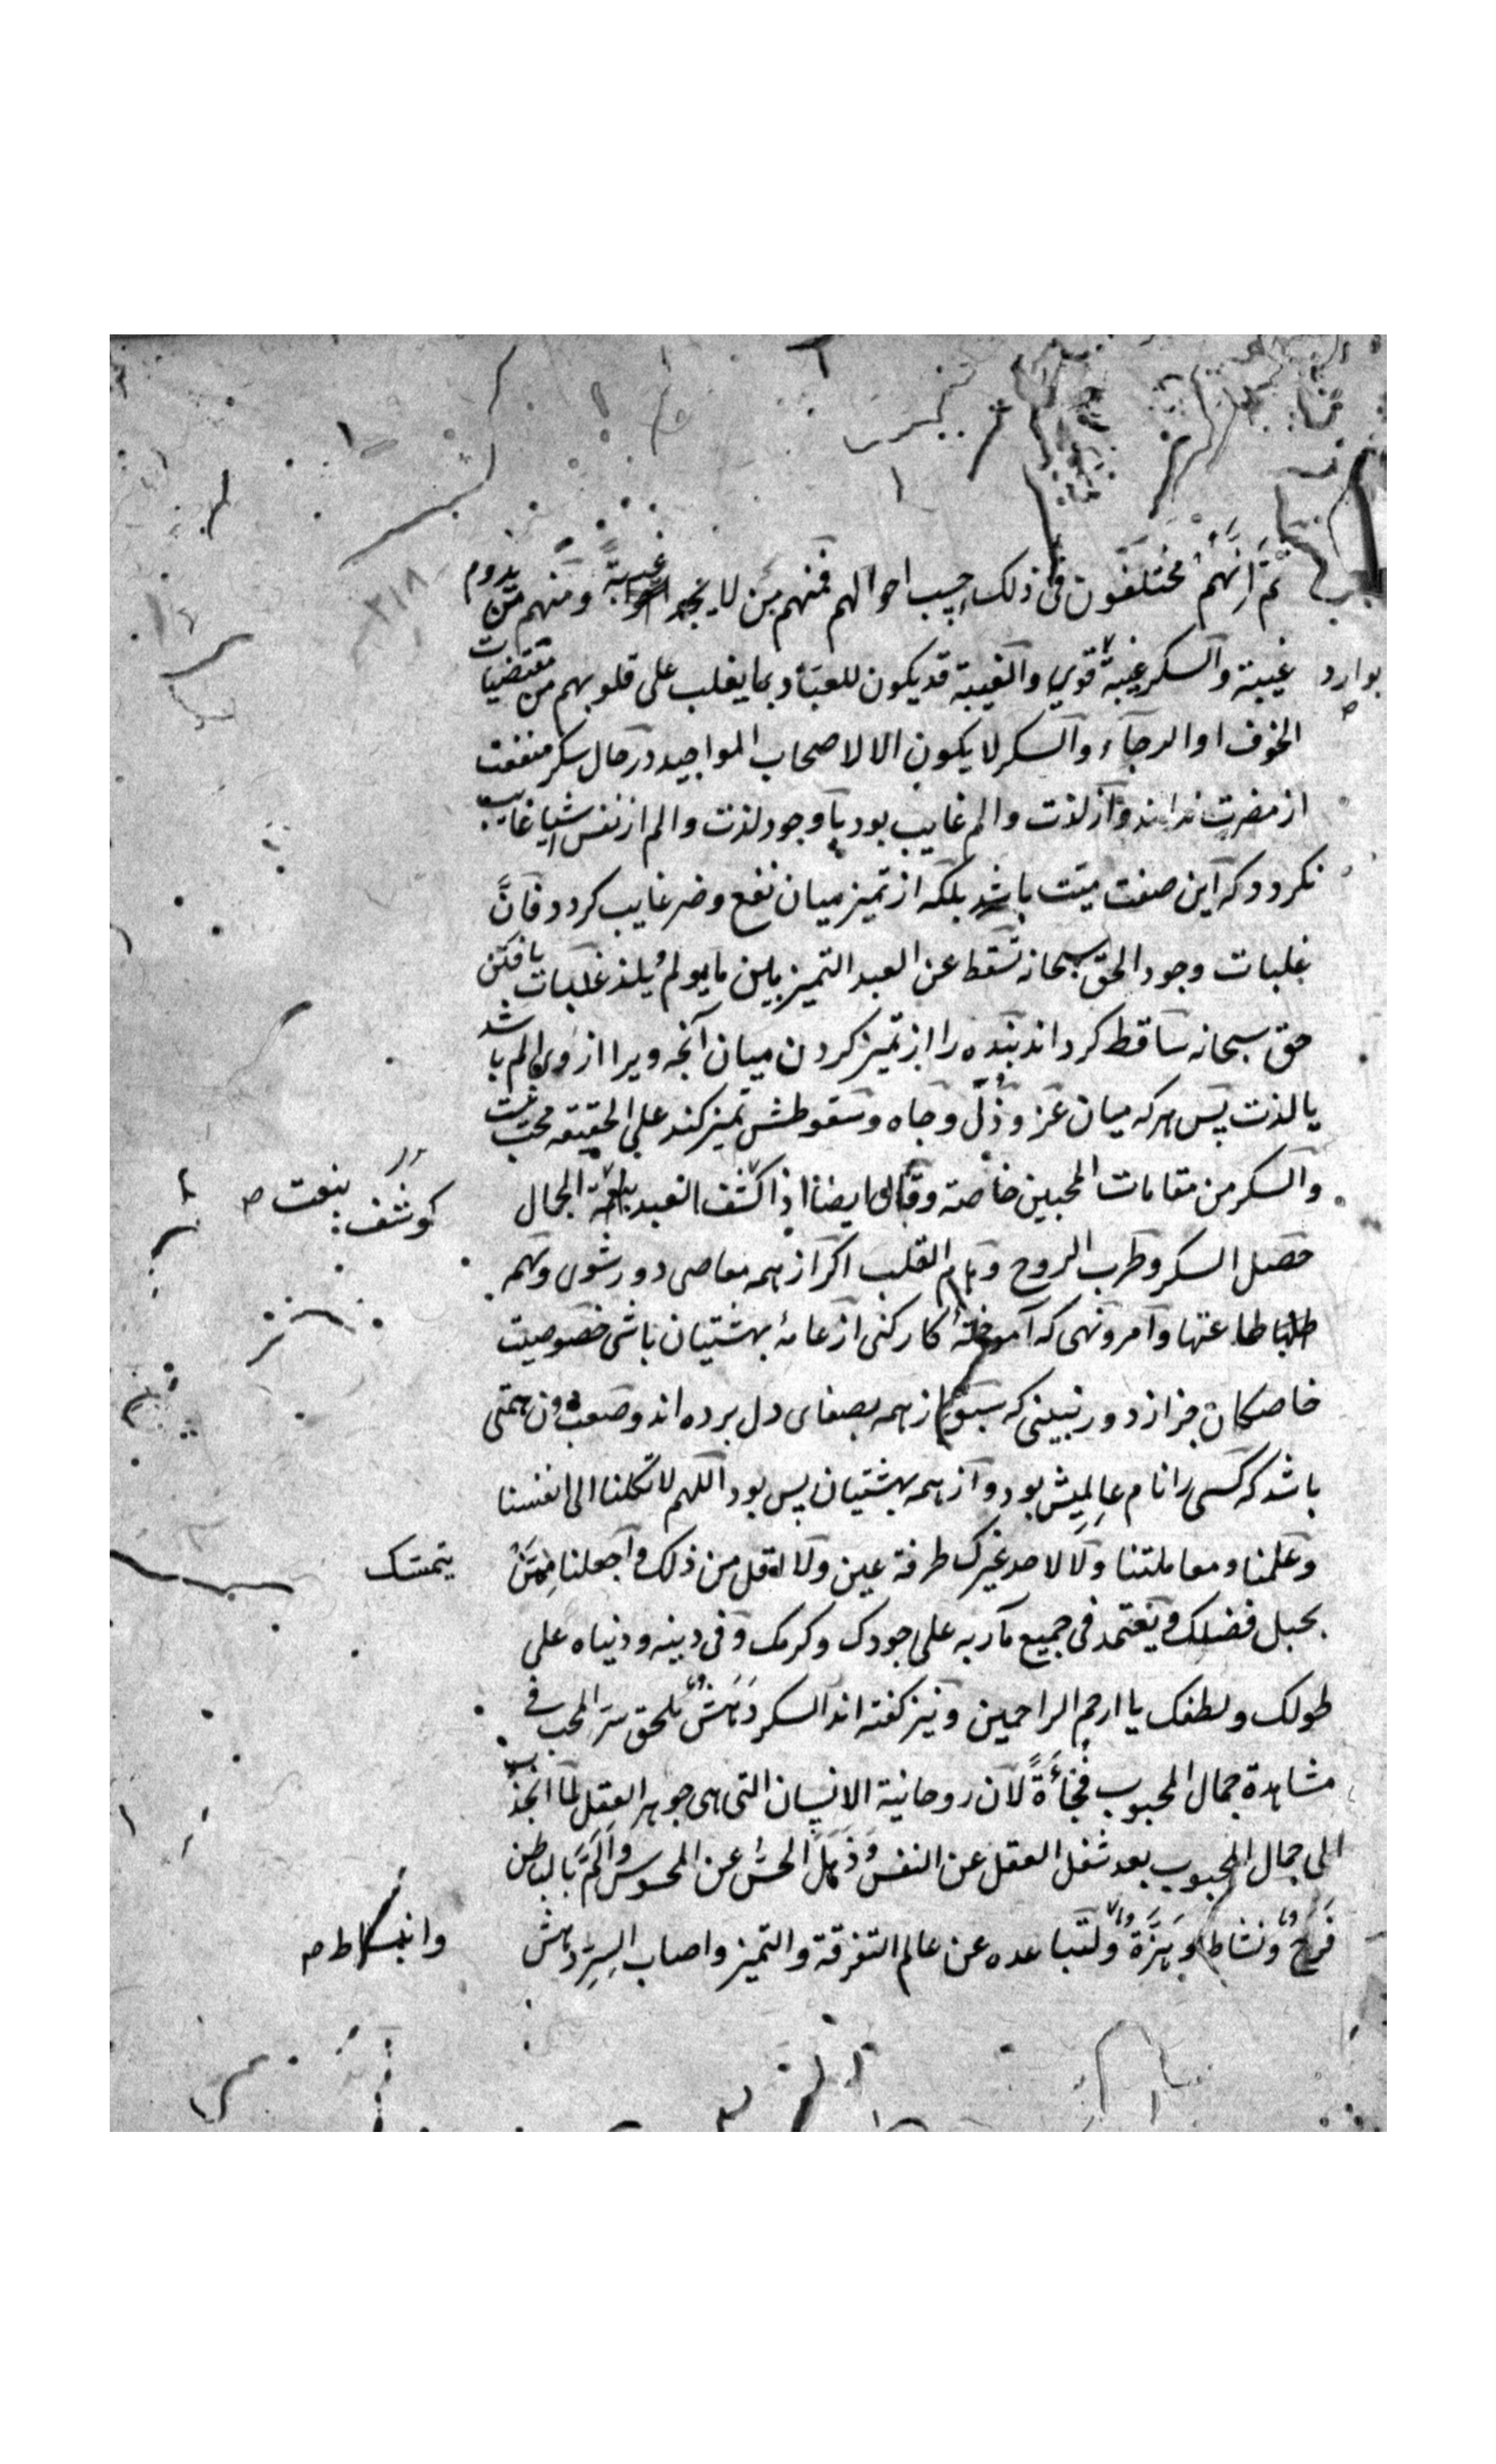 ثمَّ انَّهُم مُختلفون فی ذلک بحسب احوالهم فمنهم من لا یجد غیبةً ومنهم من یدوم
غیبته والسکر غیبة قوی والغیبة قد یکون للعبّاد بما یغلب علی قلوبهم من مقتضیات
بوارد
الخوف او الرجآء والسکر لا یکون الا لاصحاب المواجید در حال سکر منفعت
از مضرت نداند و از لذت والم غایب بود با وجود لذت والم از نفس اشیا غایب
نکردد که این صفت میّت باشد بلکه از تمیز میان نفع وضر غایب کردد فانَّ
غلبات وجود الحق سبحانه تسقط عن العبد التمیز بین ما یولم ویلذ غلبات یافتن
حق سبحانه ساقط کرداند بنده را از تمیز کردن میان آنچه ویرا از وی الم باشد
یا لذت پس هرکه میان عز و ذلّ وجاه وسقوطش تمیز کند علی الحقیقه محب نیست
والسکر من مقامات المحبین خاصة وقال ایضا اذا کشف العبد بنعت الجمال
کوشف
بنعت صح
حصل السکر وطرب الروح وهام القلب اکر از همه معاصی دور شوی وهمه
طاعتها وامر ونهی که آموخته کار کنی از عامهٔ بهشتیان باشی خصوصیت
خاصکان جز از دور نبینی که سبق از همه بصفای دل برده اند وصعب دون همتی
باشد که کسی را نام عالمیش بود واز همه بهشتیان پس بود اللهم لا تکلنا الی انفسنا
وعلمنا ومعاملتنا ولا لاحد غیرک طرفة عین ولا اقل من ذلک واجعلنا ممّن
یتمسک
بحبل فضلک ویعتمد فی جمیع مآربه علی جودک وکرمک وفی دینه ودنیاه علی
طولک ولطفک یا ارحم الراحمین ونیز کفته اند السکر دَهَشٌ یلحق سرّ المحب فی
مشاهدة جمال المحبوب فُجأةً لان روحانیة الانسان التی هی جوهر العقل لمّا انجذب
الی جمال المحبوب بعد شغل العقل عن النفس وذهل الحسّ عن المحسوس والمَّ بالباطن
فَرَح ونشاط وهَزّة ولتباعده عن عالم التفرقة والتمیز واصاب السِرّ دهش
وانبساط صح